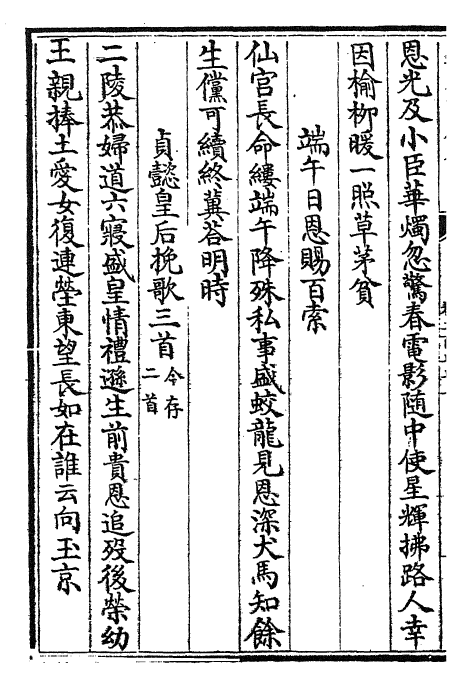 恩光及小臣華燭忽驚春電影随中使星輝拂路人幸
因榆柳暖一照草茅貧
端午日恩賜百索
仙官長命縷端午降殊私事盛蛟龍見恩深犬馬知餘
生儻可續終冀答明時
貞懿皇后挽歌三首今存二首
二陵恭婦道六寢盛皇情禮遜生前貴恩追歿後榮幼
王親捧土愛女復連塋東望長如在誰云向玉京